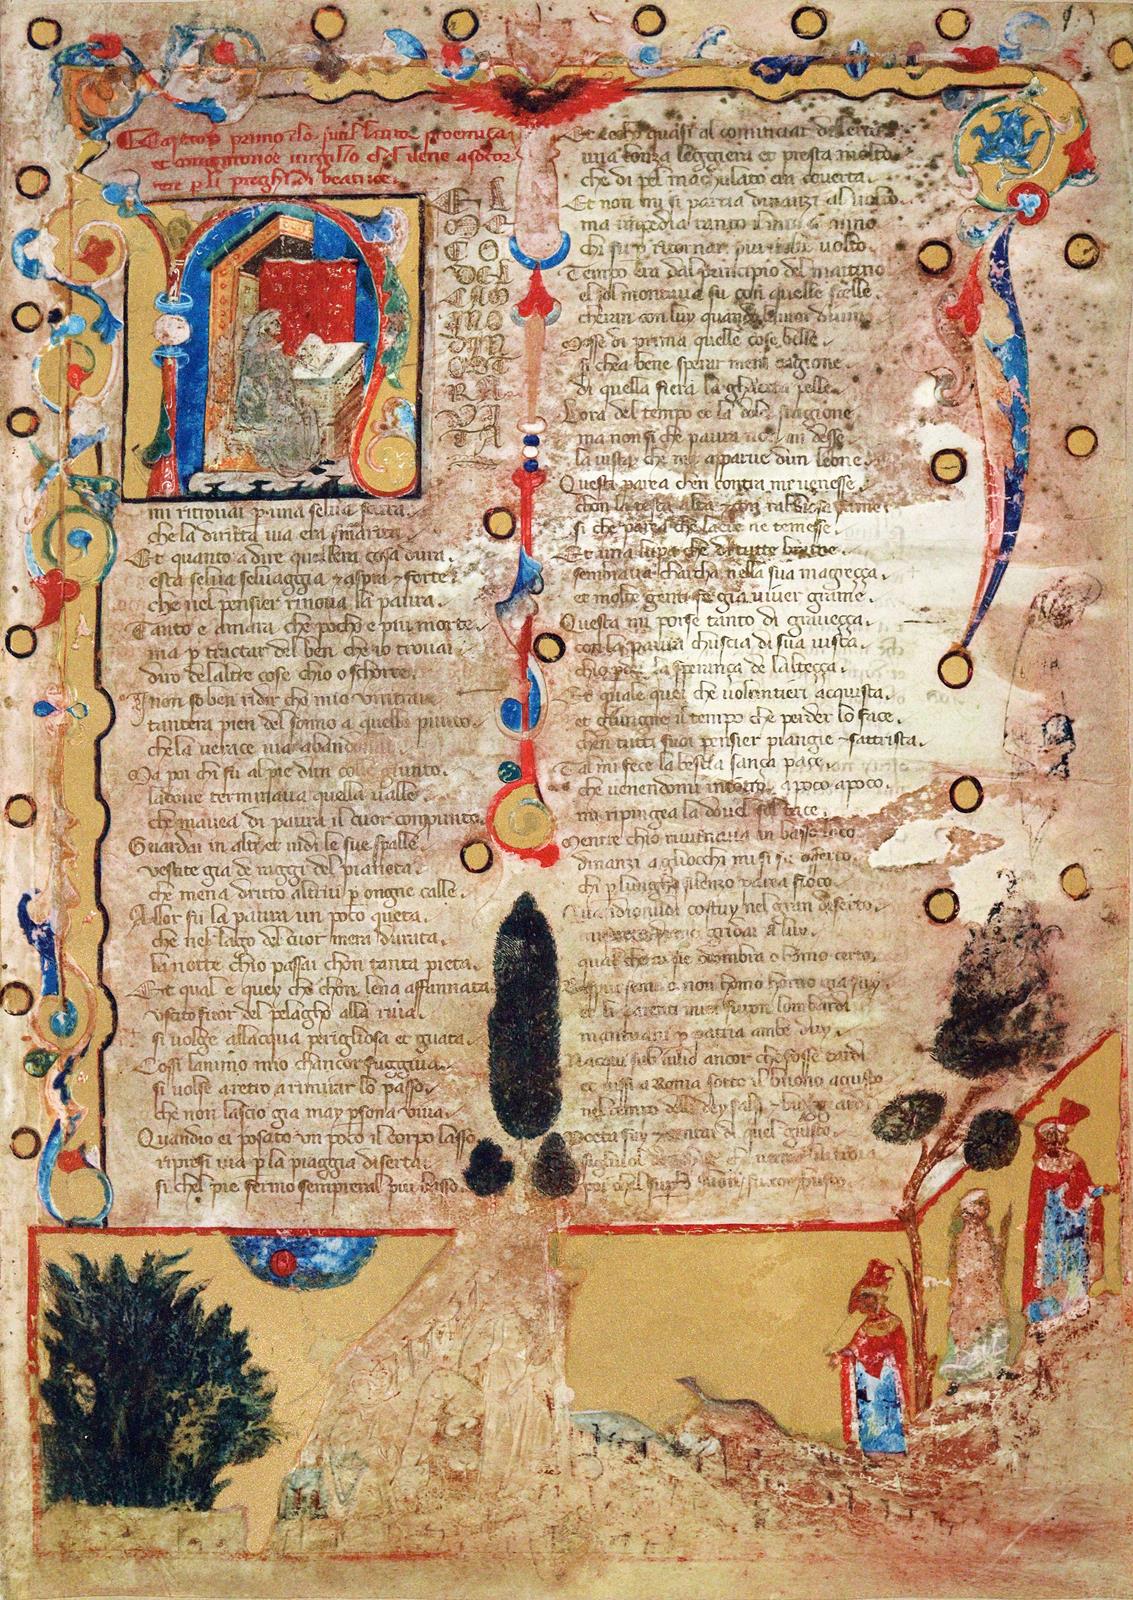 primo lautor proemiça
et uirgilio chel uene asocor
rere p li preghi di beatrice.
N
EL
ÇO
DEL
CAM
MO
DIN
OST
RA
VI
TA
mi ritrouai p una selua scura.
che la diritta uia era smarita
Et quanto a dire quallera cosa dura.
esta selua seluaggia & aspra & forte
che nel pensier rinoua la paura.
Tanto e amara che pocho e piu morte
ma p tractar del ben che io trouai
diro delaltre cose chio o schorte.
I non so ben ridir cho mio
tantera pien del sonno a quello punto
che la uerace uia abandonai
Ma poi chi fu al pie dun colle giunto.
ladoue terminaua quella ualle.
che mauea di paura il cuor compunto.
Guardai in alto et uidi le sue spalle.
uestite gia de raggi del pianeta
che mena dritto altrui p ongne calle
Allor fu la paura un poco queta.
che nel lago del cuor mera durata.
la notte chio passai chon tanta pieta.
Et qual e quey che chon lena affannata
uscito fuor del pelagho alla riua.
si uolge allacqua perigliosa et guata.
Cossi lanimo mio chancor fuggiua.
si uolse aretro a rimirar lo passo.
che non lascio gia may psona uiua.
Quandio ei posato un poco il corpo lasso
ripresi uia p la piaggia diserta.
si chel pie fermo sempreral piu basso.
Et echo quasi al cominciar delerta
una lonza leggiera et presta molto
che di pel machulato era couerta.
Et non mi si partia dinanzi al uolto
ma impedia tanto il mio camino
chi fu p ritornar piu uolte uolto.
Tempo era dal principio del mattino
el sol montaua su con quelle stelle.
cheran con luy quando lamor diuino
Mosse di prima quelle cose belle
si chea bene sperar mera caggione
di quella fiera la ghaietta pelle.
Lora del tempo et la dolce stagione
ma non si che paura non mi desse
la uista che mi apparue dun leone.
Questi parea chen contra me uenesse.
chon la testa alta & con rabbiosa fame.
si che parea che laere ne temesse.
Et una lupa che di tutte brame
sembiaua charcha nella sua magreçça.
et molte genti fe gia uiuer grame.
Questa mi porse tanto di graueçça.
con la paura chuscia di sua uista.
chio perdei la sperança de lalteçça.
Et quale quei che uolentieri acquista.
et giungne il tempo che perder lo face.
chen tutti suoi pensier piangie & sattrista.
Tal mi fece la bestia sança pace.
che uenendomi incontro. a poco a poco.
mi ripingea la doue il sol tace.
Mentre chio ruuinaua in basso loco
dinanzi agliocchi mi si fu offerto.
chi p lungho silenzo parea fioco.
Quando uidi costuy nel gran diserto.
gridai a luy.
qual che tu sie o ombra o homo certo.
non homo homo gia fuy
et li parenti miei furon lombardi
mantuani p patria ambe duy.
Nacqui sub iulio ancor che fosse tardi
et uissi a Roma sotto il buono agusto
nel tempo delli dey falsi & bugiardi
Poeta fuy & cantai di quel giusto